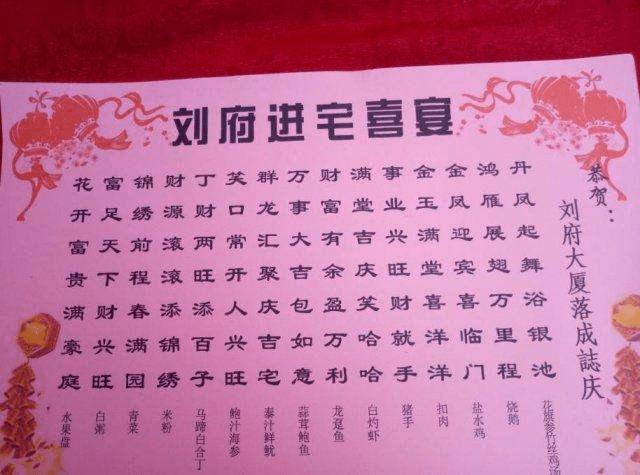 刘府进宅喜宴
恭贺：
刘府大厦落成誌庆
丹凤起舞浴银池
花旗参竹丝鸡
鸿雁展翅万里程
烧鹅
金凤迎宾喜临门
盐水鸡
金玉满堂喜洋洋
扣肉
事业兴旺财就手
猪手
满堂吉庆笑哈哈
白灼虾
财富有余盈万利
龙趸鱼
万事大吉包如意
蒜茸鲍鱼
群龙汇聚庆吉宅
泰汁鲜鱿
笑口常开人兴旺
鲍汁海参
丁财两旺添百子
马蹄白合丁
财源滚滚添锦绣
米粉
锦绣前程春满园
青菜
富足天下财兴旺
白粥
花开富贵满豪庭
水果盘